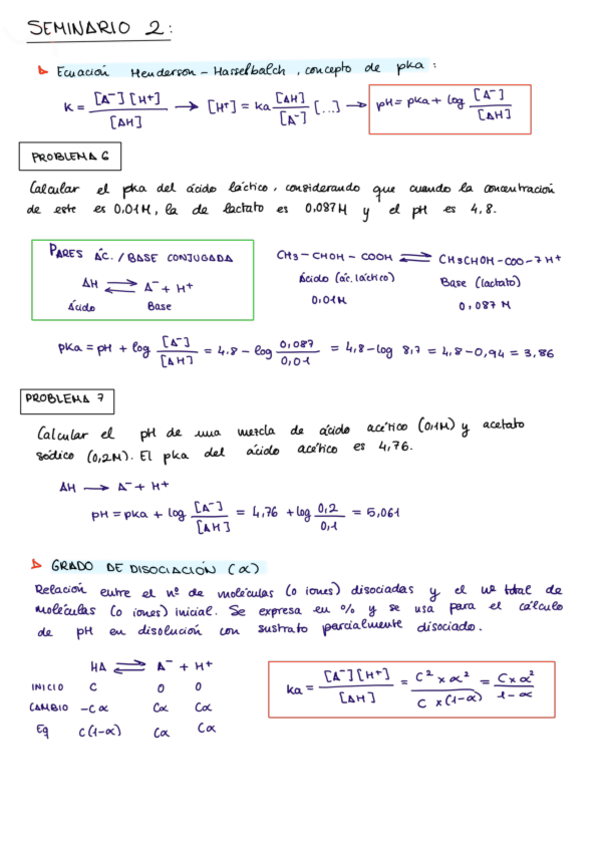 SEMINARIO 2:
Ecuación Henderson - Hasselbalch, concepto de pka:
K = [A⁻][H⁺] / [AH] → [H⁺] = ka [AH] / [A⁻] [...] → pH = pka + log [A⁻] / [AH]
PROBLEMA 6
Calcular el pka del ácido láctico, considerando que cuando la concentración
de este es 0,01M, la de lactato es 0,087M y el pH es 4,8.
PARES ÁC. / BASE CONJUGADA
AH ⇌ A⁻ + H⁺
Ácido Base
CH3 - CHOH - COOH ⇌ CH3CHOH-COO-7H⁺
Ácido (ác. láctico) Base (lactato)
0,01M 0,087 M
pKa = pH + log [A⁻] / [AH] = 4,8 - log 0,087 / 0,01 = 4,8 - log 8,7 = 4,8 - 0,94 = 3,86
PROBLEMA 7
Calcular el pH de una mezcla de ácido acético (0,1M) y acetato
sódico (0,2M). El pka del ácido acético es 4,76.
AH → A⁻ + H⁺
pH = pka + log [A⁻] / [AH] = 4,76 + log 0,2 / 0,1 = 5,061
GRADO DE DISOCIACIÓN (α)
Relación entre el nº de moléculas (o iones) disociadas y el nº total de
moléculas (o iones) inicial. Se expresa en % y se usa para el cálculo
de pH en disolución con sustrato parcialmente disociado.
HA ⇌ A⁻ + H⁺
INICIO C 0 0
CAMBIO -Cα Cα Cα
Eq C(1-α) Cα Cα
ka = [A⁻][H⁺] / [AH] = C² x α² / C x (1-α) = C x α² / 1-α